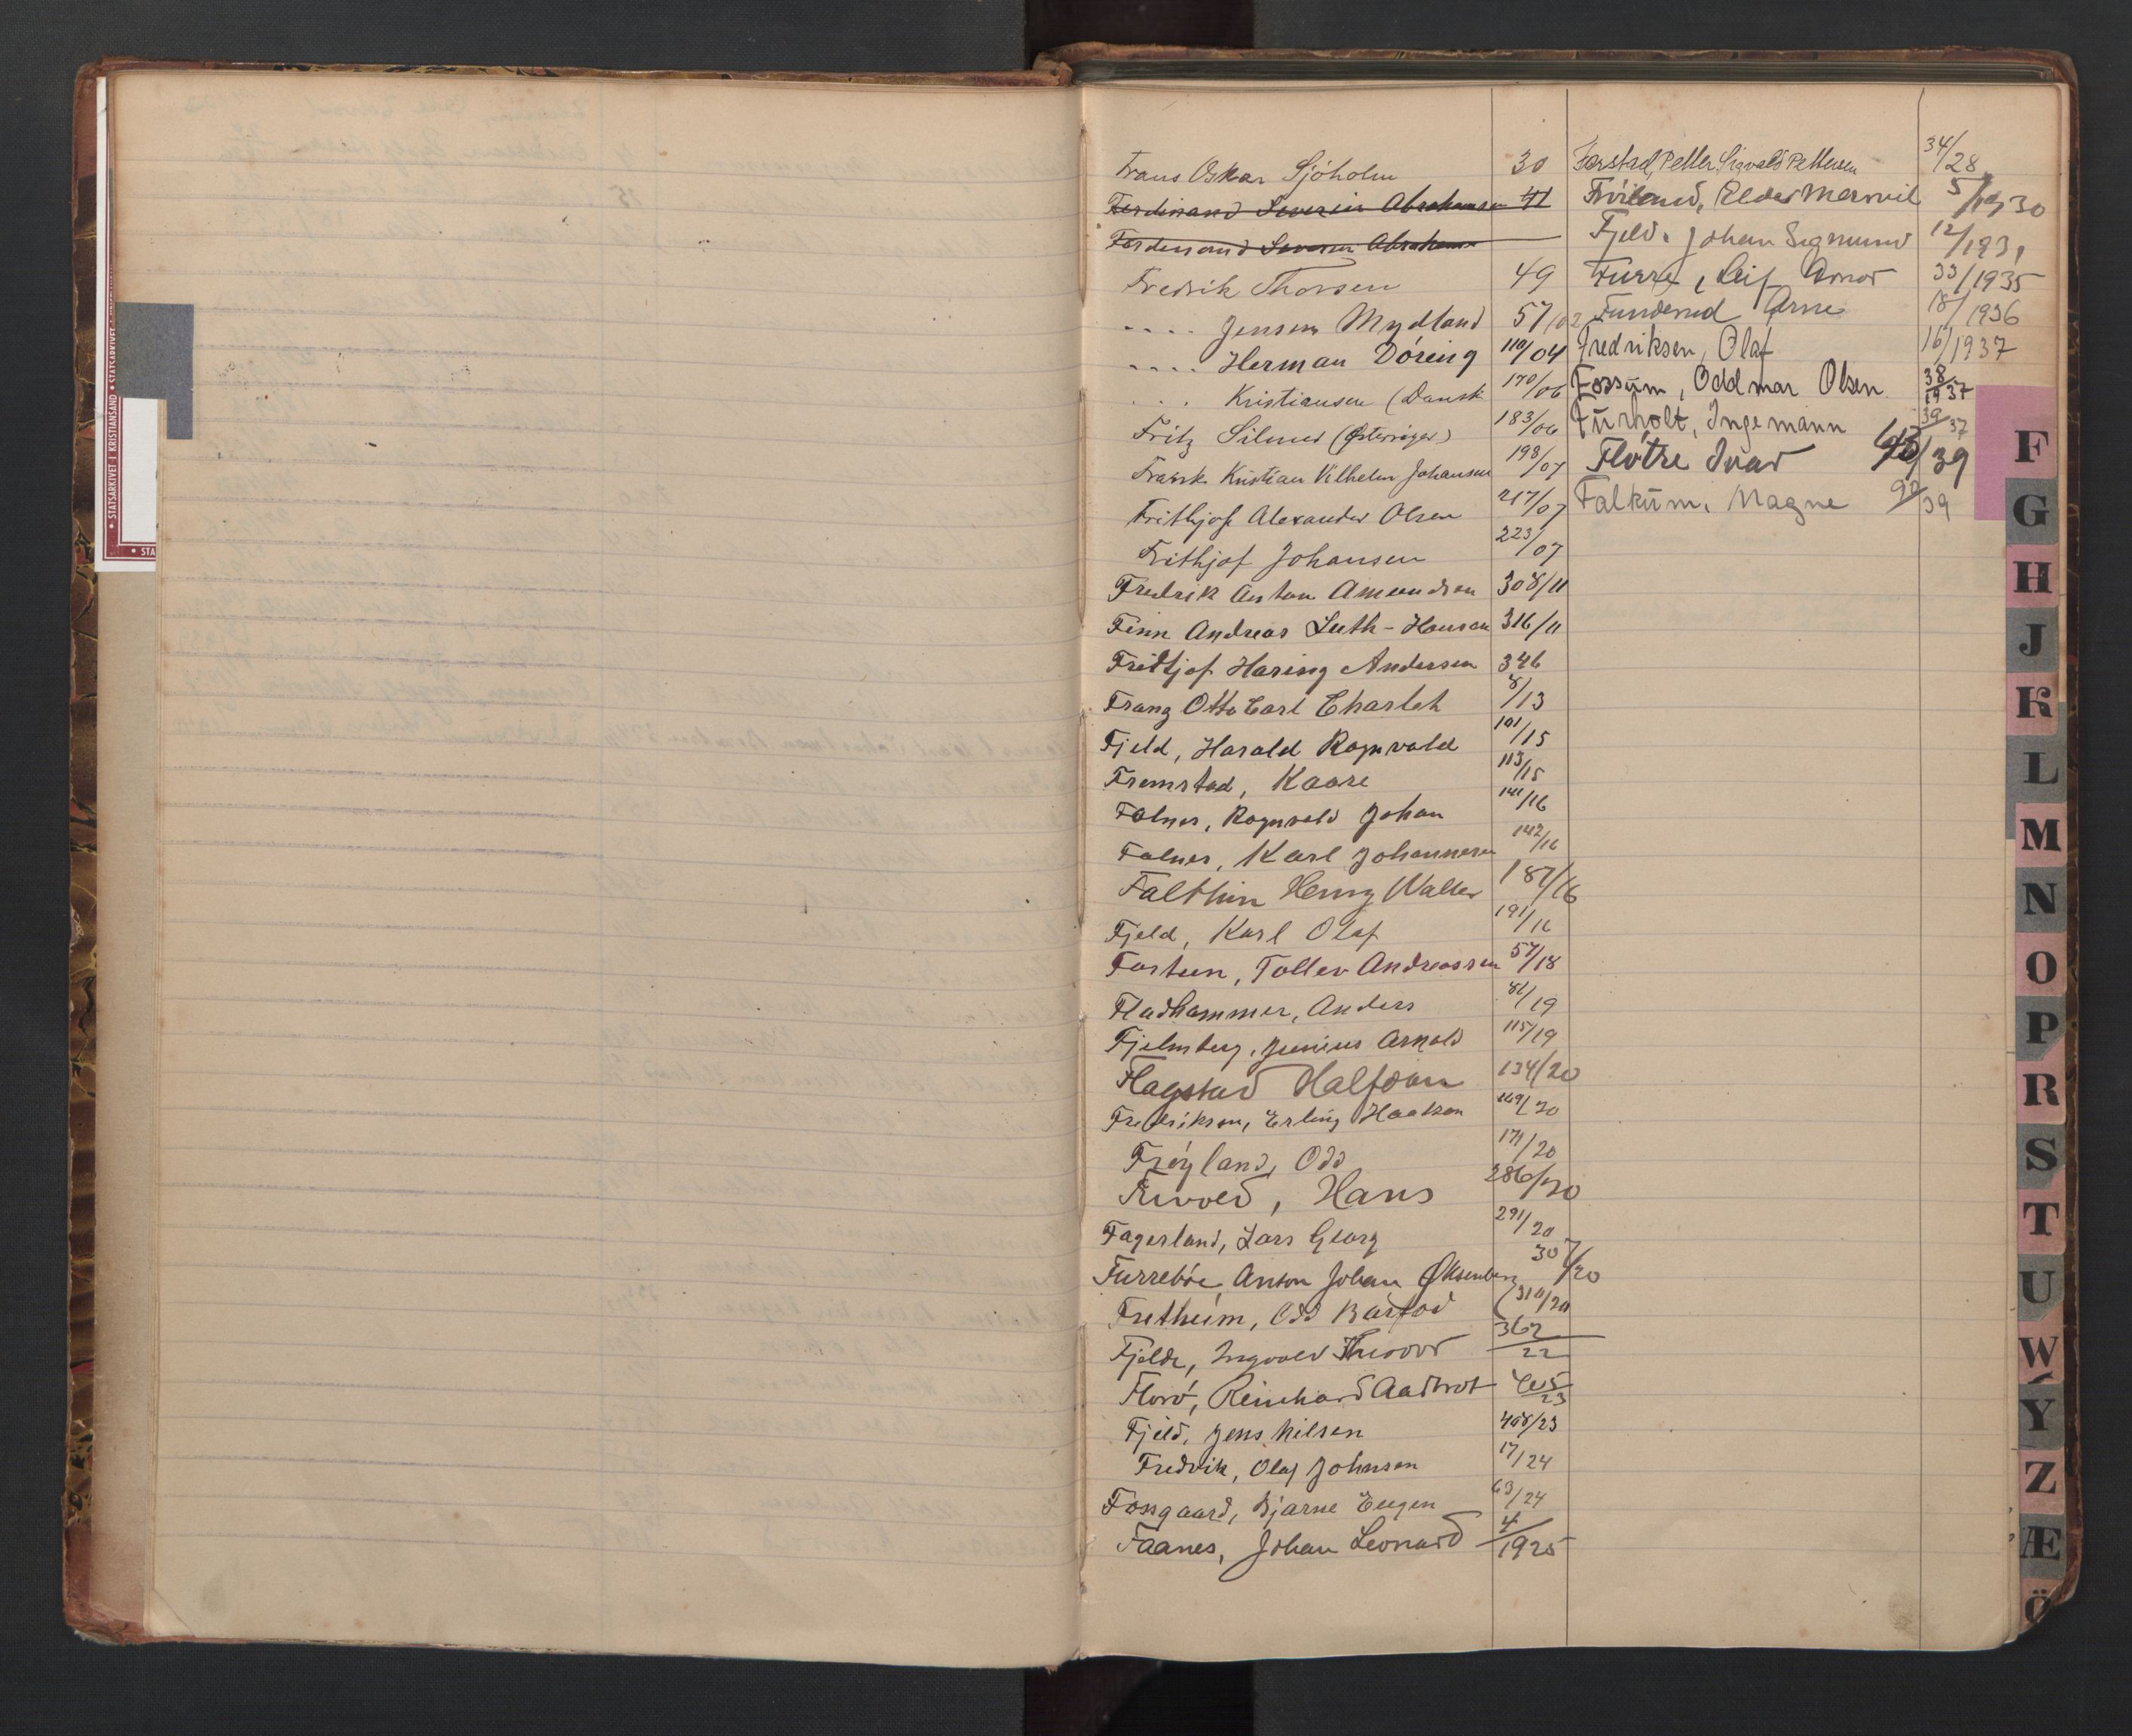 Frans Oskar Sjöholm 30
Ferdinand Severin Abrahamsen 41
Ferdinand Severin Abrahams
Fredrik Thorsen 49
.... Jensen Mydland 57/02
.... Herman Döring 110/04
... Kristiansen (Dansk 170/06
Fritz (Østerriger) 183/06
Frank Kristian Vilhelm Johansen 198/07
Frithjof Alexander Olsen 217/07
Frithjof Johansen 223/07
Fredrik Anton Amundsen 308/11
Finn Andreas Luth-Hansen 316/11
Fridtjof Haring Andersen 346
Franz Otto Carl Charlet 8/13
Fjeld, Harald Ragnvald 101/15
Fremstad, Kaare 113/15
Falnes, Ragnvald Johan 141/16
Falnes, Karl Johannesen 142/16
Falthin Henry Walter 187/16
Fjeld, Karl Olaf 191/16
Fosteen, Tollev Andreassen 57/18
Fladhammer, Anders 81/19
Fjelmberg, Junius Arnold 115/19
Flagstad Halfdan 134/20
Fredriksen, Erling Haakon 169/20
Frøyland, Odd 171/20
Hans 286/20
Fagerland, Lars Georg 291/20
Furrebøe, Anton Johan Øksenberg 307/20
Fretheim, Odd Barfod 310/20
Fjelde, Ingvald Theodor 362/22
Florö, Reinhard Aadtrot 405/23
Fjeld, Jens Nilsen 408/23
Fredvik, Olaf Johnsen 17/24
Fossgaard, Bjarne Eugen 63/24
Faanes, Johan Leonard 4/1925
Forstad, Petter Sigvald Pettersen 34/28
Fröiland, Peder 5/1930
Fjeld. Johan Sigmund 12/1931
Furre, Leif Arnor 33/1935
Funderud Arne 18/1936
Fredriksen, Olaf 16/1937
Fossum, Oddmar Olsen 38/1937
Furholt, Ingemann 39/37
Fløtre Ivar /39
Falkum, Magne 90/39
F
G
H
J
K
L
M
N
O
P
R
S
T
U
W
Y
Z
Æ
Ö
• STATSARKIVET I KRISTIANSAND • STATSARKIVET
• STA